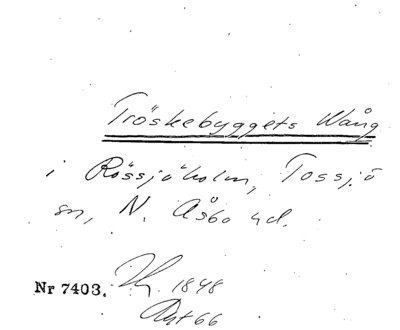 Tröskebyggets Wång
i Rössjöholm, Tossjö
sn, N. Åsbo hd.
Nr 7403.
1848
66